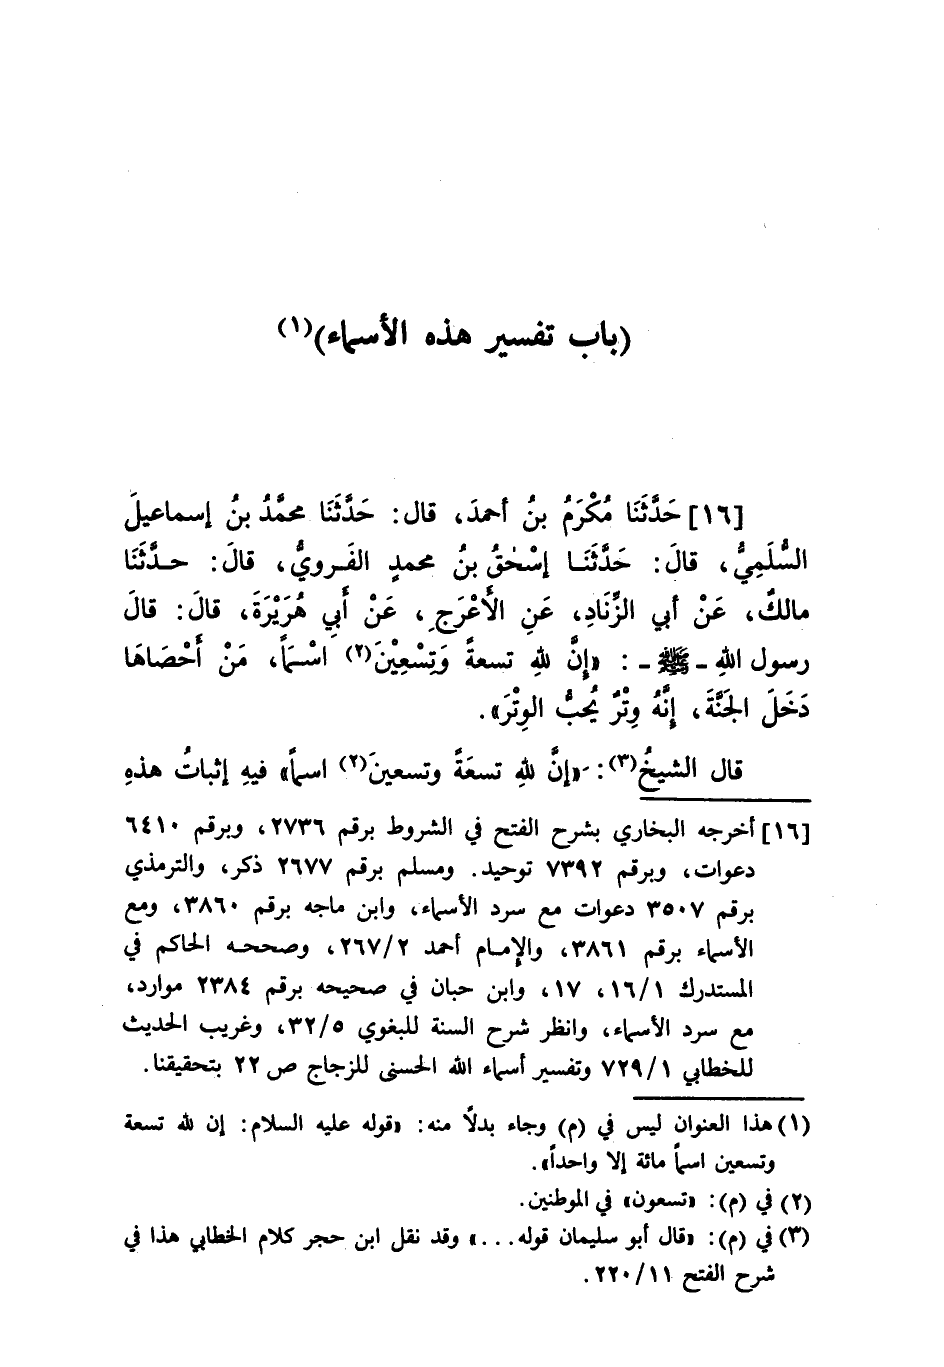 (باب تفسير هذه الأسماء)(١)
[١٦] حَدَّثَنَا مُكْرَمُ بنُ أحمدَ، قال: حَدَّثَنَا محمَّدُ بنُ إسماعيلَ
السُّلَمِيُّ، قالَ: حَدَّثَنَـا إسْحٰقُ بنُ محمدٍ الفَرويُّ، قالَ: حـدَّثَنَا
مالكٌ، عَنْ أبي الزِّنَادِ، عَنِ الأَعْرَجِ، عَنْ أَبِي هُرَيْرَةَ، قالَ: قالَ
رسول اللهِ ـ ﷺ ـ : «إِنَّ للهِ تسعةً وَتِسْعِيْنَ(٢) اسْمَاً، مَنْ أَحْصَاهَا
دَخَلَ الجَنَّةَ، إِنَّهُ وِتْرٌ يُحبُّ الوِتْرَ».
قال الشيخُ(٣): «إنَّ للهِ تسعَةً وتسعينَ(٢) اسماً» فيهِ إثباتُ هذهِ
[١٦] أخرجه البخاري بشرح الفتح في الشروط برقم ٢٧٣٦، وبرقم ٦٤١٠
دعوات، وبرقم ٧٣٩٢ توحيد. ومسلم برقم ٢٦٧٧ ذكر، والترمذي
برقم ٣٥٠٧ دعوات مع سرد الأسماء، وابن ماجه برقم ٣٨٦٠، ومع
الأسماء برقم ٣٨٦١، والإمـام أحمد ٢٦٧/٢، وصححـه الحاكم في
المستدرك ١٦/١، ١٧، وابن حبان في صحيحه برقم ٢٣٨٤ موارد،
مع سرد الأسماء، وانظر شرح السنة للبغوي ٣٢/٥، وغريب الحديث
للخطابي ٧٢٩/١ وتفسير أسماء الله الحسنى للزجاج ص ٢٢ بتحقيقنا.
(١) هذا العنوان ليس في (م) وجاء بدلاً منه: «قوله عليه السلام: إن لله تسعة
وتسعين اسماً مائة إلا واحداً».
(٢) في (م): «تسعون» في الموطنين.
(٣) في (م): «قال أبو سليمان قوله...» وقد نقل ابن حجر كلام الخطابي هذا في
شرح الفتح ٢٢٠/١١.